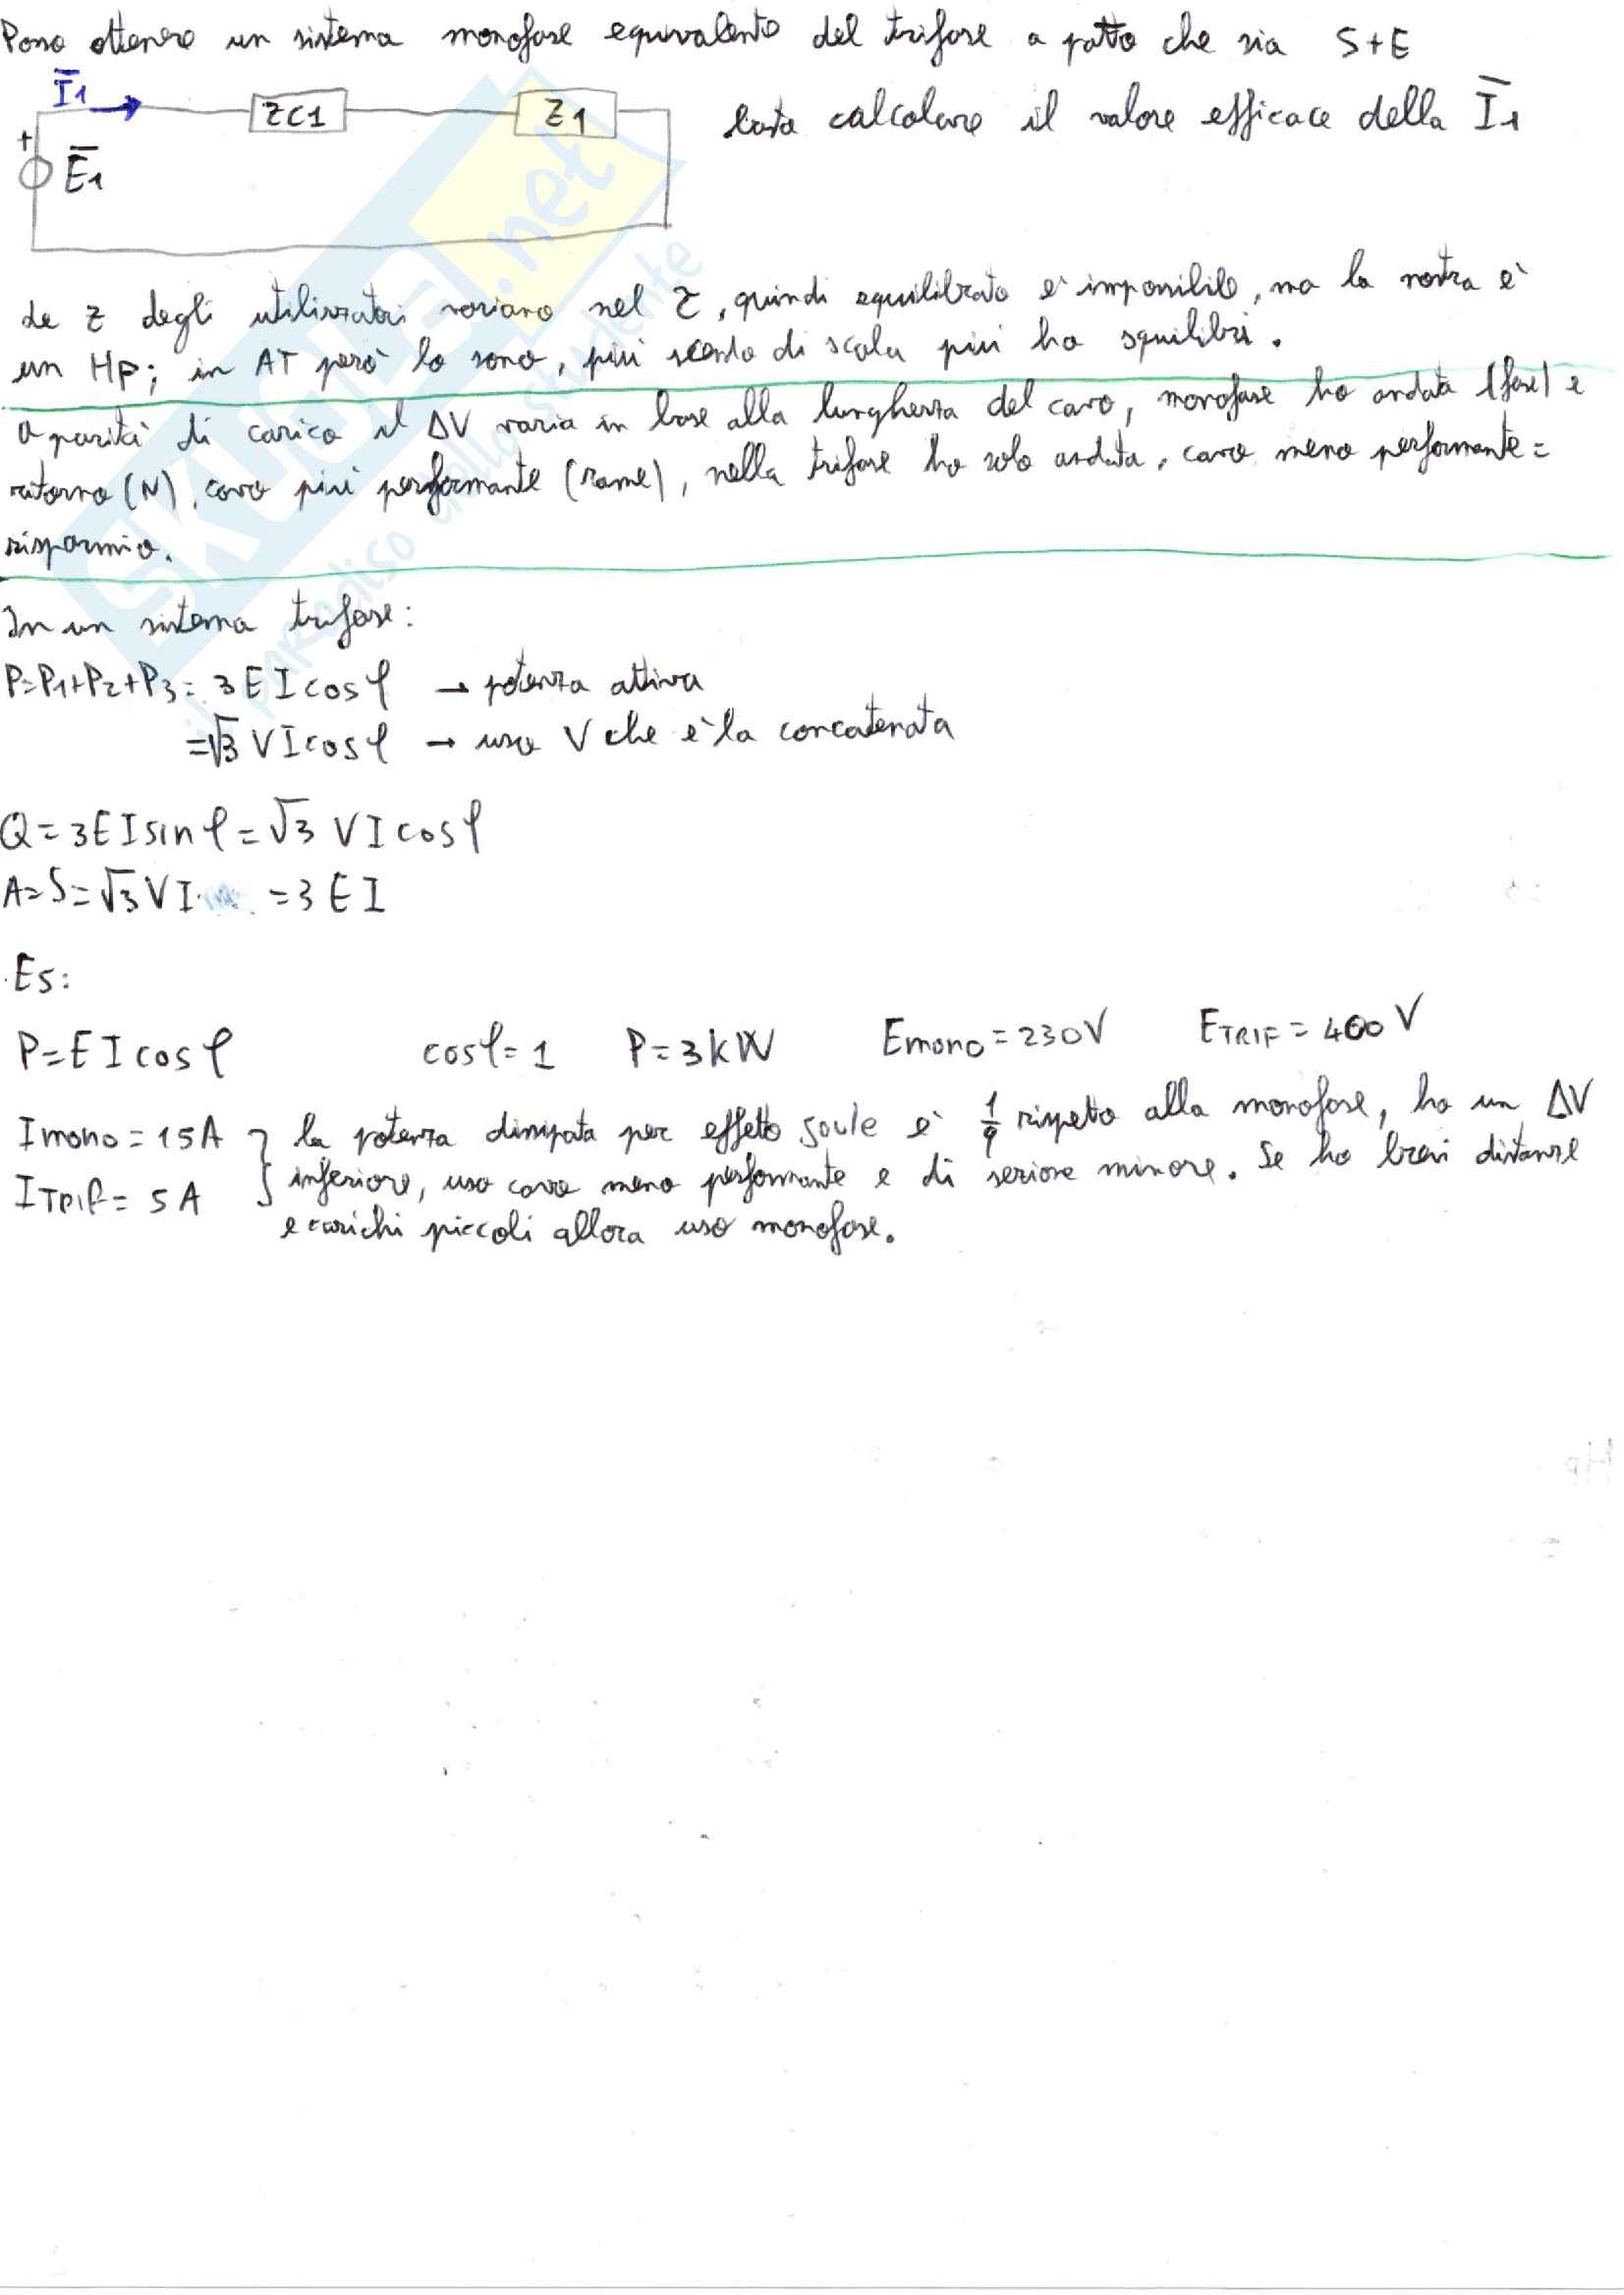 Posso ottenere un sistema monofase equivalente del trifase a patto che sia S+E
I1 ZC1 Z1 basta calcolare il valore efficace della I1
+ E1
Le Z degli utilizzatori variano nel τ, quindi equilibrato è impossibile, ma la nostra è
un Hp; in AT però lo sono, più scendo di scala più ho squilibri.
A parità di carico il ΔV varia in base alla lunghezza del cavo, monofase ho andata (fase) e
ritorno (N), cavo più performante (rame), nella trifase ho solo andata, cavo meno performante =
risparmio.
In un sistema trifase:
P=P1+P2+P3= 3EIcosφ → potenza attiva
=√3 VIcosφ → uso V che è la concatenata
Q=3EIsinφ=√3 VIcosφ
A=S=√3VI =3EI
Es:
P=EIcosφ cosφ=1 P=3kW Emono=230V ETRIF=400V
Imono=15A } la potenza dissipata per effetto Joule è 1/9 rispetto alla monofase, ho un ΔV
ITRIF=5A inferiore, uso cavo meno performante e di sezione minore. Se ho brevi distanze
e carichi piccoli allora uso monofase.
SKUOLA.net
il paradiso dello studente